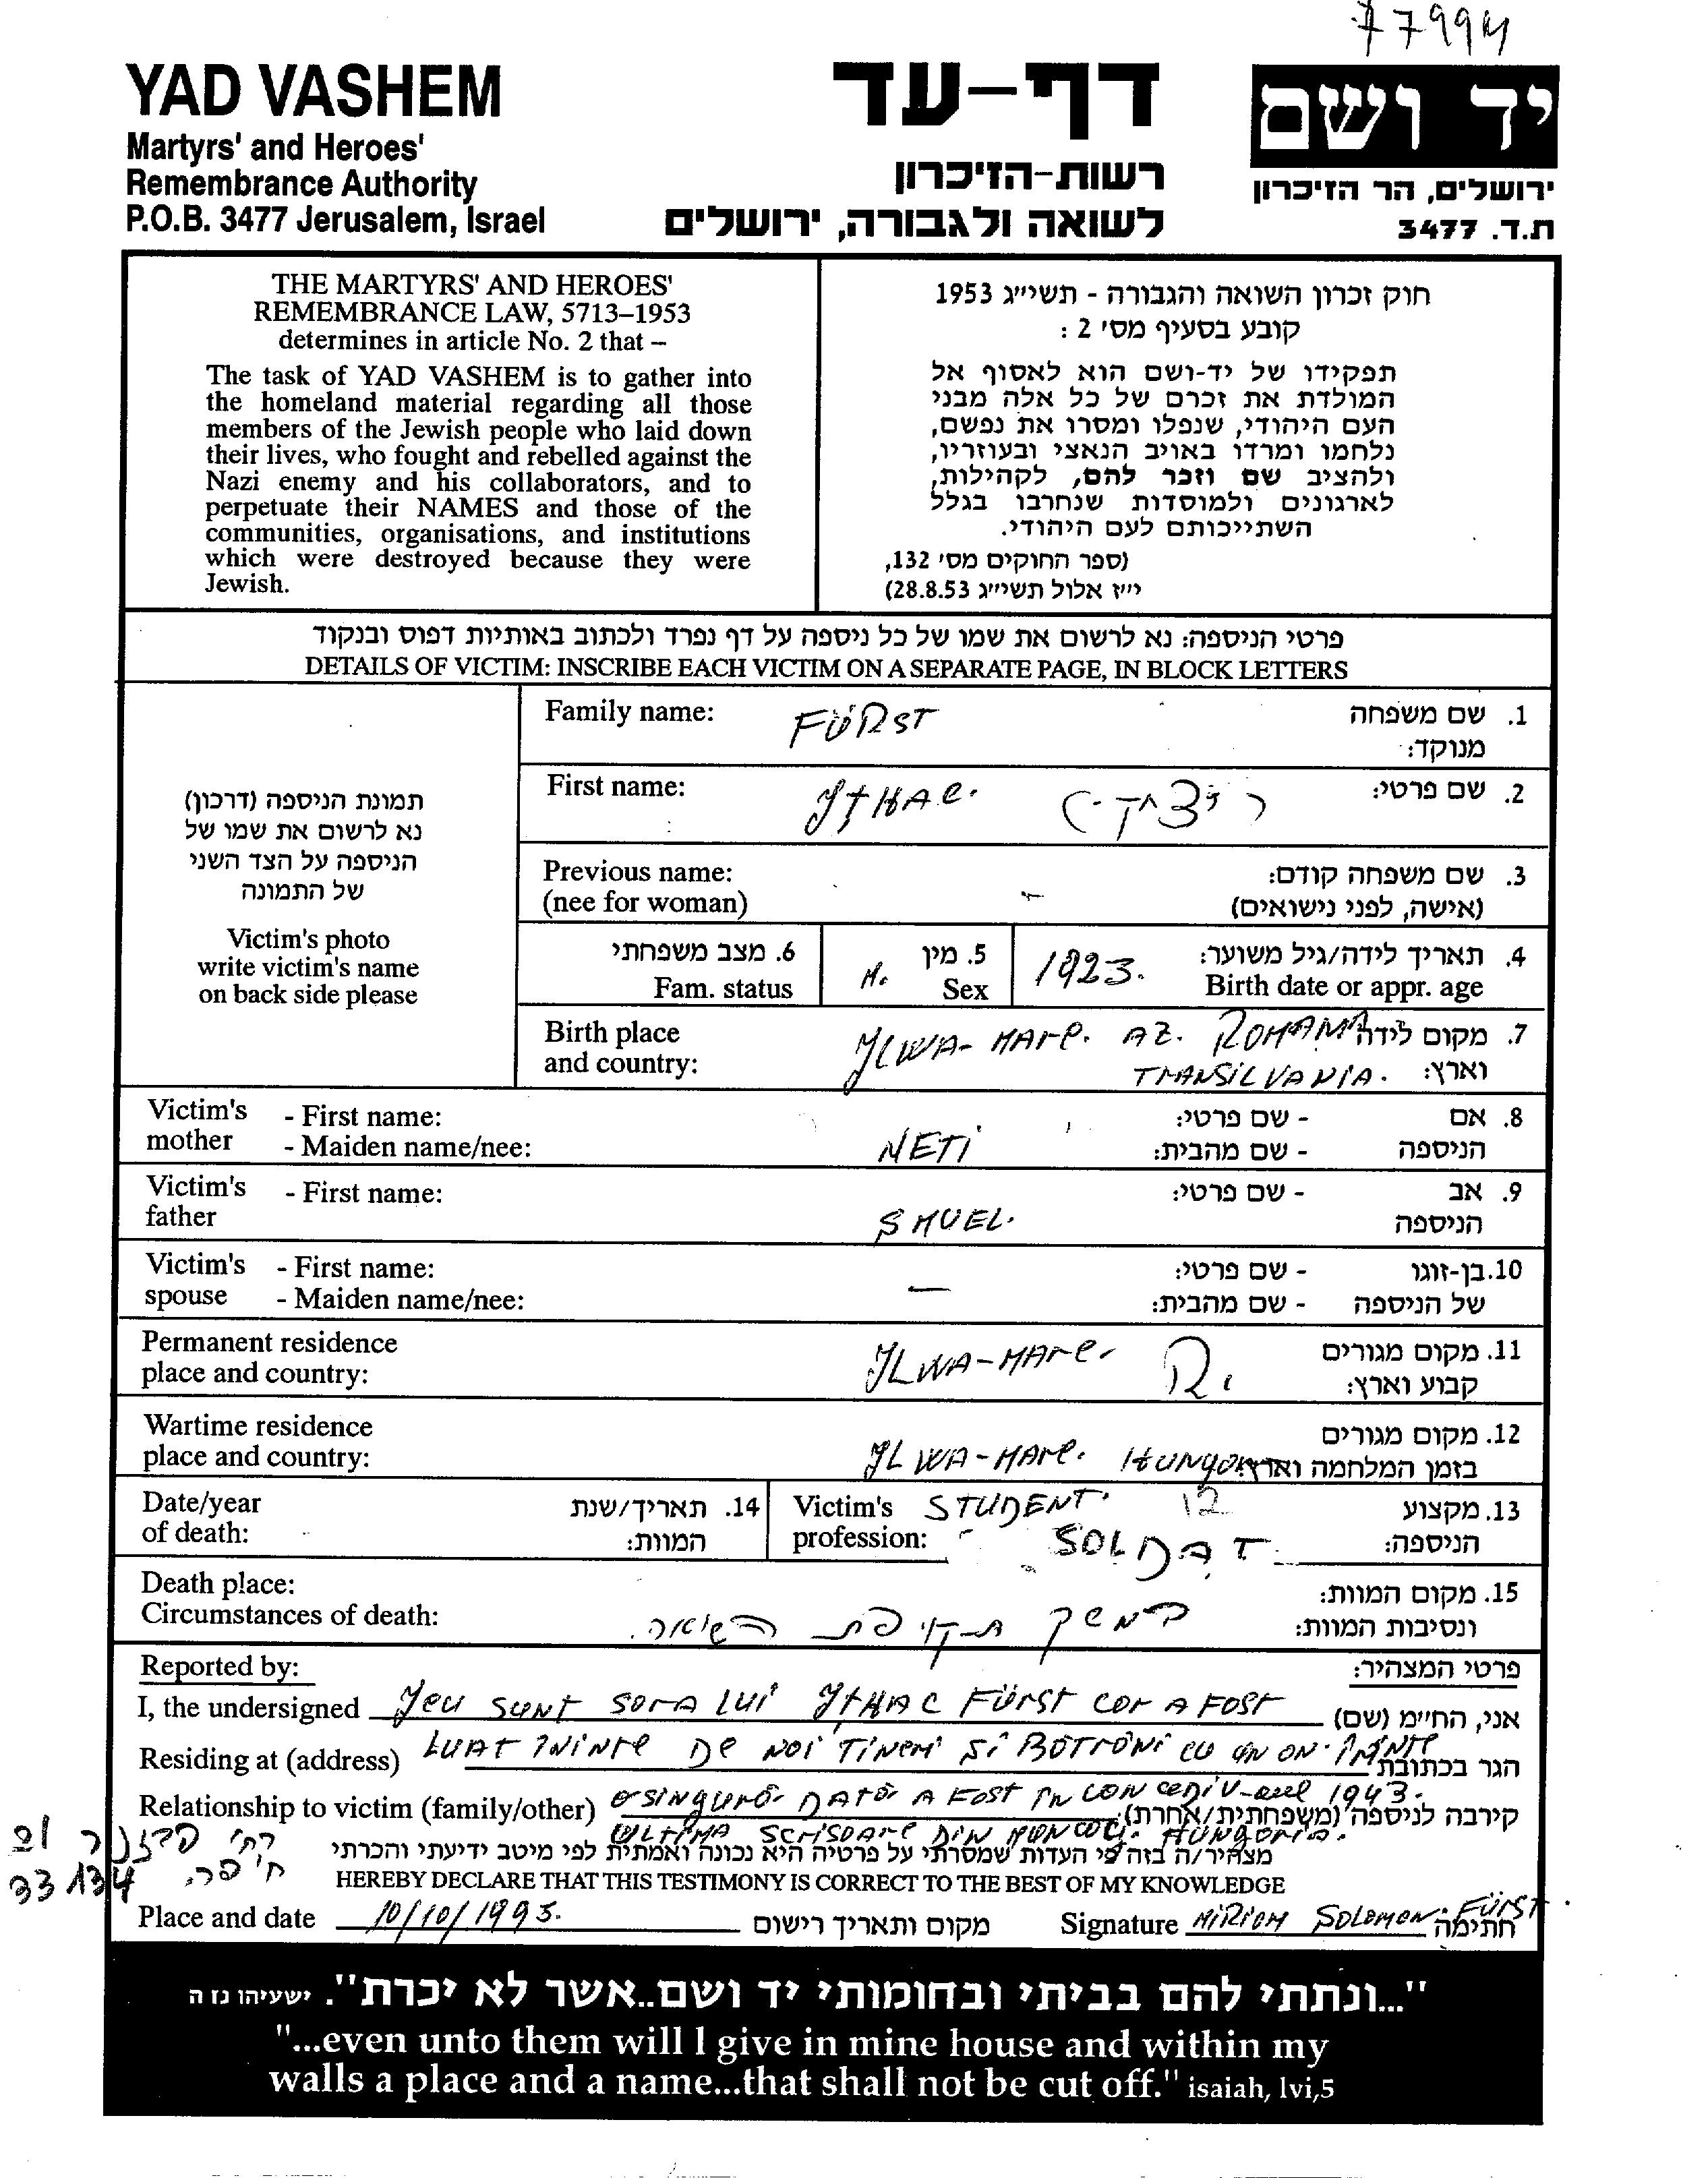 77994
YAD VASHEM
Martyrs' and Heroes'
Remembrance Authority
P.O.B. 3477 Jerusalem, Israel
דף-עד
רשות-הזיכרון
לשואה ולגבורה, ירושלים
יד ושם
ירושלים, הר הזיכרון
ת.ד. 3477
THE MARTYRS' AND HEROES'
REMEMBRANCE LAW, 5713–1953
determines in article No. 2 that –
The task of YAD VASHEM is to gather into
the homeland material regarding all those
members of the Jewish people who laid down
their lives, who fought and rebelled against the
Nazi enemy and his collaborators, and to
perpetuate their NAMES and those of the
communities, organisations, and institutions
which were destroyed because they were
Jewish.
חוק זכרון השואה והגבורה - תשי״ג 1953
קובע בסעיף מס׳ 2 :
תפקידו של יד-ושם הוא לאסוף אל
המולדת את זכרם של כל אלה מבני
העם היהודי, שנפלו ומסרו את נפשם,
נלחמו ומרדו באויב הנאצי ובעוזריו,
ולהציב שם וזכר להם, לקהילות,
לארגונים ולמוסדות שנחרבו בגלל
השתייכותם לעם היהודי.
(ספר החוקים מס׳ 132,
י״ז אלול תשי״ג 28.8.53)
פרטי הניספה: נא לרשום את שמו של כל ניספה על דף נפרד ולכתוב באותיות דפוס ובנקוד
DETAILS OF VICTIM: INSCRIBE EACH VICTIM ON A SEPARATE PAGE, IN BLOCK LETTERS
תמונת הניספה (דרכון)
נא לרשום את שמו של
הניספה על הצד השני
של התמונה
Victim's photo
write victim's name
on back side please
Family name: FÜRST 1. שם משפחה
מנוקד:
First name: YTHAC. (יצחק) 2. שם פרטי:
Previous name: 3. שם משפחה קודם:
(nee for woman) – (אישה, לפני נישואים)
6. מצב משפחתי 5. מין 4. תאריך לידה/גיל משוער:
Fam. status M. Sex 1923. Birth date or appr. age
Birth place YLWA-MARE. AZ. ROMANIA 7. מקום לידה
and country: TRANSILVANIA. וארץ:
Victim's - First name: - שם פרטי: 8. אם
mother - Maiden name/nee: NETI - שם מהבית: הניספה
Victim's - First name: - שם פרטי: 9. אב
father SMUEL. הניספה
Victim's - First name: - שם פרטי: 10. בן-זוגו
spouse - Maiden name/nee: — - שם מהבית: של הניספה
Permanent residence 11. מקום מגורים
place and country: YLWA-MARE. R. קבוע וארץ:
Wartime residence 12. מקום מגורים
place and country: YLWA-MARE. בזמן המלחמה וארץ:
Date/year 14. תאריך/שנת Victim's STUDENT. 12 13. מקצוע
of death: המוות: profession: SOLDAT הניספה:
Death place: 15. מקום המוות:
Circumstances of death: במשך תקופת השואה. ונסיבות המוות:
Reported by: פרטי המצהיר:
I, the undersigned Yeu SUNT SORA LUI YTHAC FÜRST COR A FOST אני, החי״מ (שם)
Residing at (address) LUAT ININTE DE NOI TINERI SI BOTRONI CU UN ON הגר בכתובת
Relationship to victim (family/other) O SINGURO DATO A FOST IN 1943. קירבה לניספה (משפחתית/אחרת):
ULTIMA SCRISOARE DIN HUNGORIA.
מצהיר/ה בזה כי העדות שמסרתי על פרטיה היא נכונה ואמתית לפי מיטב ידיעתי והכרתי
HEREBY DECLARE THAT THIS TESTIMONY IS CORRECT TO THE BEST OF MY KNOWLEDGE
21
חיפה.
33134
Place and date 10/10/1995. מקום ותאריך רישום Signature MIRIOM SOLOMON. FÜRST. חתימה
"...ונתתי להם בביתי ובחומותי יד ושם..אשר לא יכרת". ישעיהו נז ה
"...even unto them will I give in mine house and within my
walls a place and a name...that shall not be cut off." isaiah, lvi,5